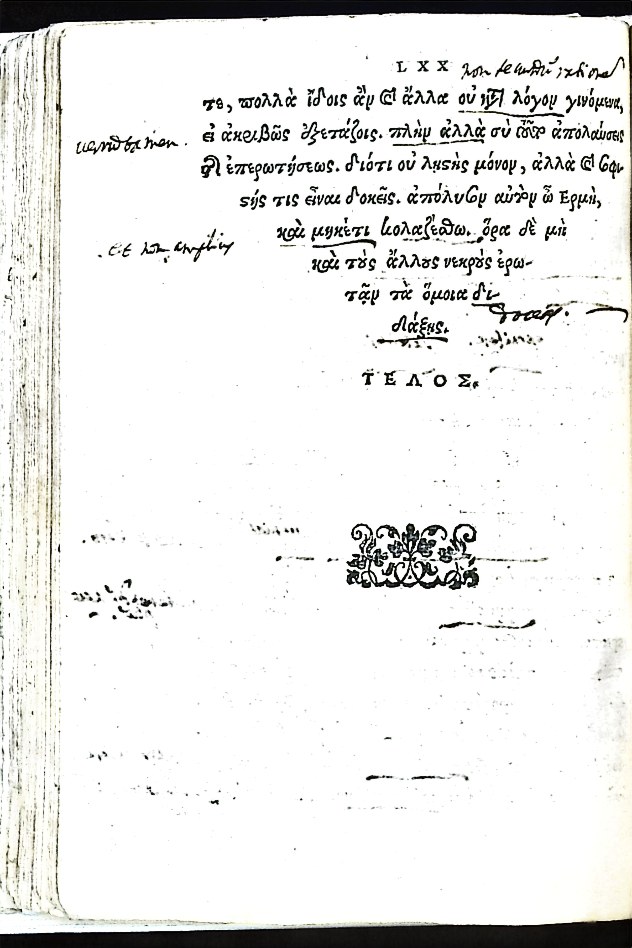 LXX
τε, πολλὰ ἴδοις ἂν καὶ ἄλλα οὐ κατὰ λόγον γινόμενα,
εἰ ἀκριβῶς ἐξετάζοις. πλὴν ἀλλὰ σὺ τοῦτο ἀπολαύσεις
τῆς ἐπερωτήσεως. διότι οὐ λῃστὴς μόνον, ἀλλὰ καὶ σοφι-
στής τις εἶναι δοκεῖς. ἀπόλυσον αὐτὸν ὦ Ἑρμῆ,
καὶ μηκέτι κολαζέσθω. ὅρα δὲ μὴ
καὶ τοὺς ἄλλους νεκροὺς ἐρω-
τᾷν τὰ ὅμοια δι-
διάξῃς.
ΤΕΛΟΣ.